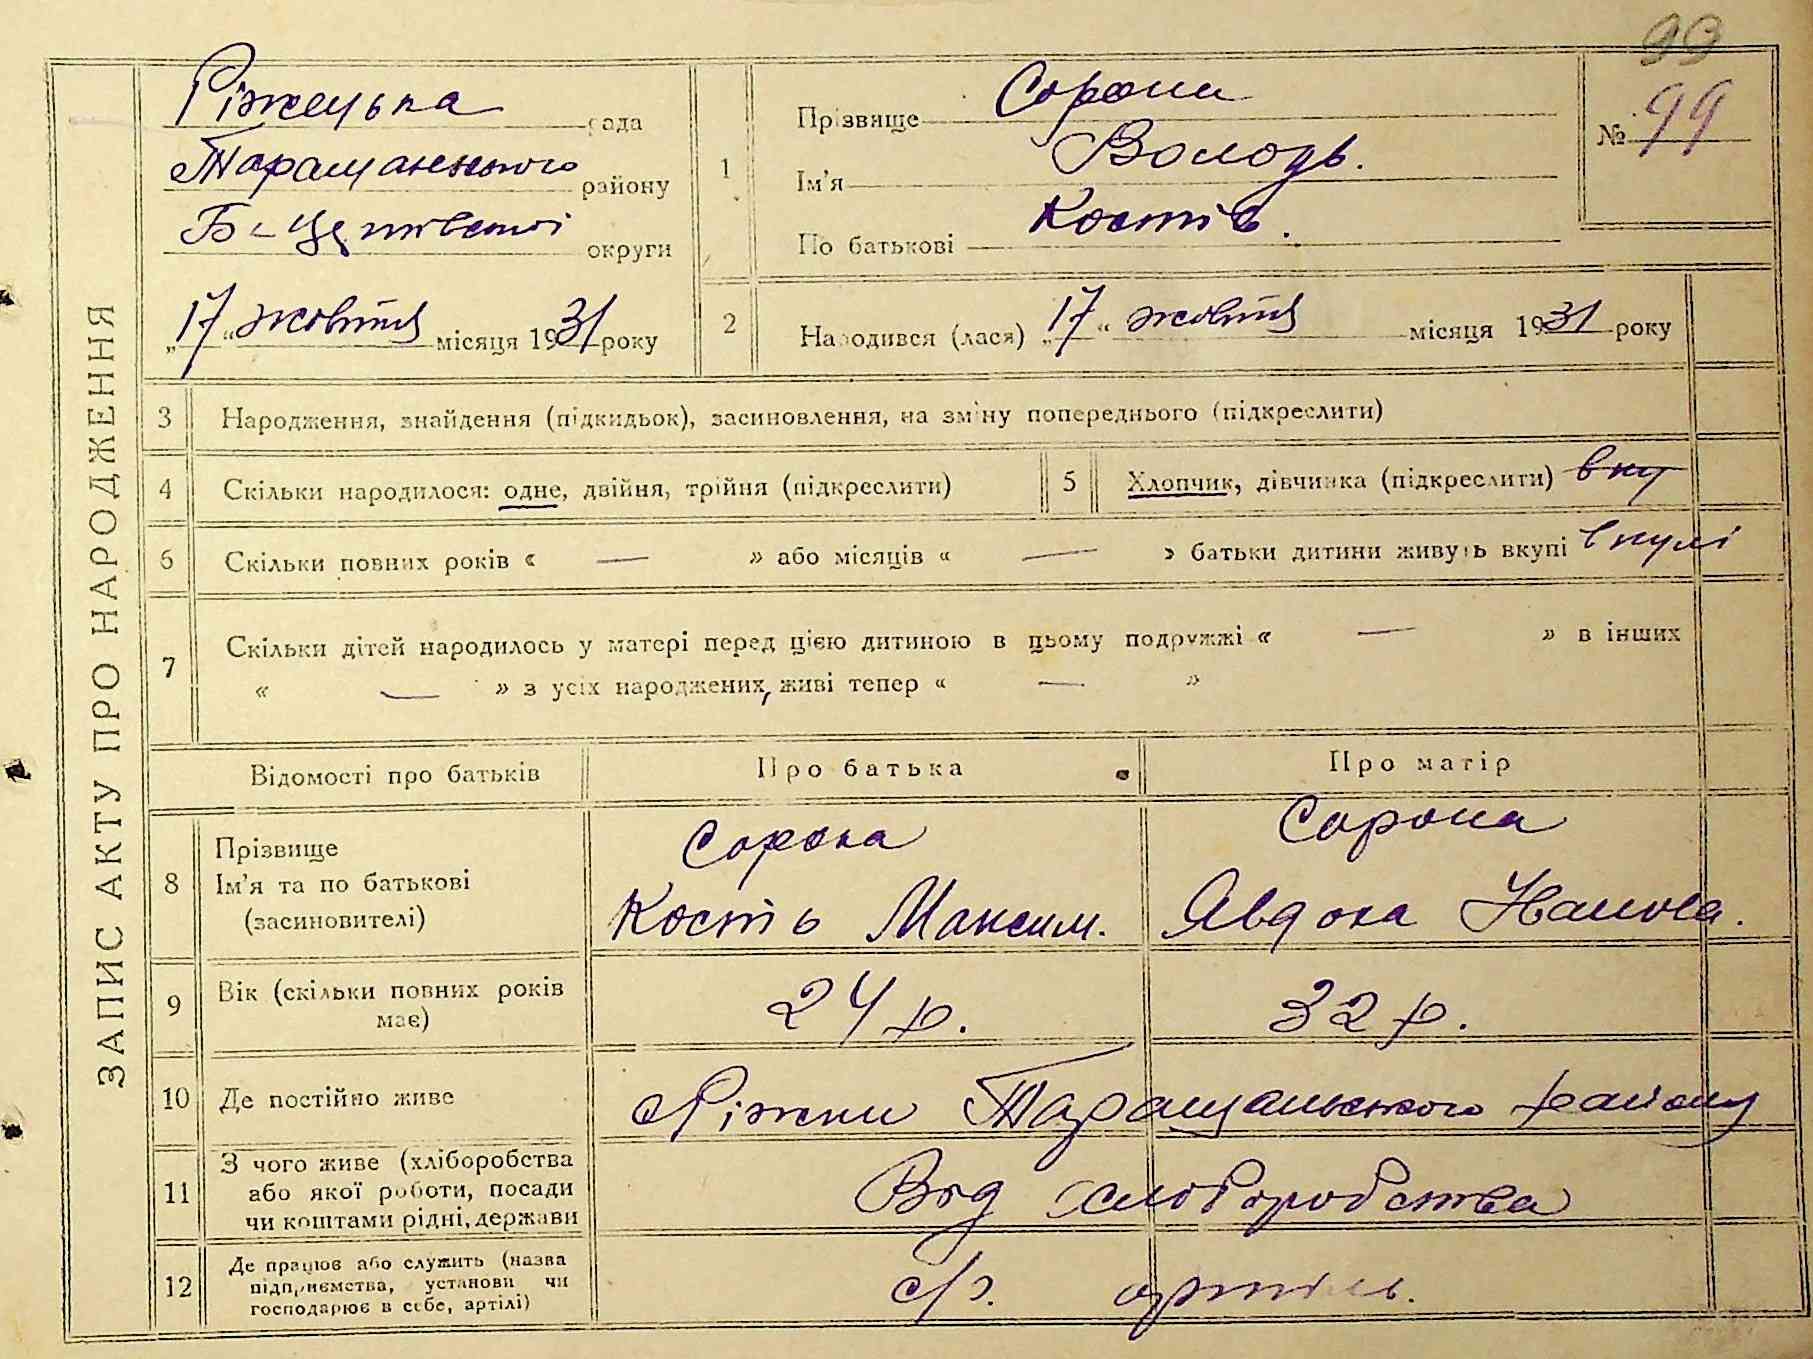 99
ЗАПИС АКТУ ПРО НАРОДЖЕННЯ
Ріжецька рада
Таращанського району
Б-Церківської округи
„17“ жовтня місяця 1931 року
№ 99
1
Прізвище Сорока
Ім'я Володь.
По батькові Костів.
2
Народився (лася) „17“ жовтня місяця 1931 року
3 Народження, знайдення (підкидьок), засиновлення, на зміну попереднього (підкреслити)
4 Скільки народилося: одне, двійня, трійня (підкреслити)
5 Хлопчик, дівчинка (підкреслити) вку
6 Скільки повних років « — » або місяців « — » батьки дитини живуть вкупі вкупі
7 Скільки дітей народилось у матері перед цією дитиною в цьому подружжі « — » в інших
« — » з усіх народжених, живі тепер « — »
Відомості про батьків Про батька Про матір
8 Прізвище
Ім'я та по батькові
(засиновителі)
Сорока
Кость Максим.
Сорока
Явдока
9 Вік (скільки повних років
має)
24 р. 32 р.
10 Де постійно живе с Ріжки Таращанського району
11 З чого живе (хліборобства
або якої роботи, посади
чи коштами рідні, держави
Від хліборобства
12 Де працює або служить (назва
підприємства, установи чи
господарює в себе, артілі)
с/г. артіль.